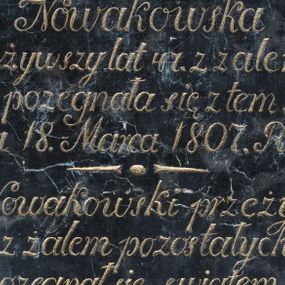 Nowakowska
żywszy lat 42. z żale
pozegnała się z tem
18. Marca 1807. R
Nowakowski przeży
z żalem pozostałych